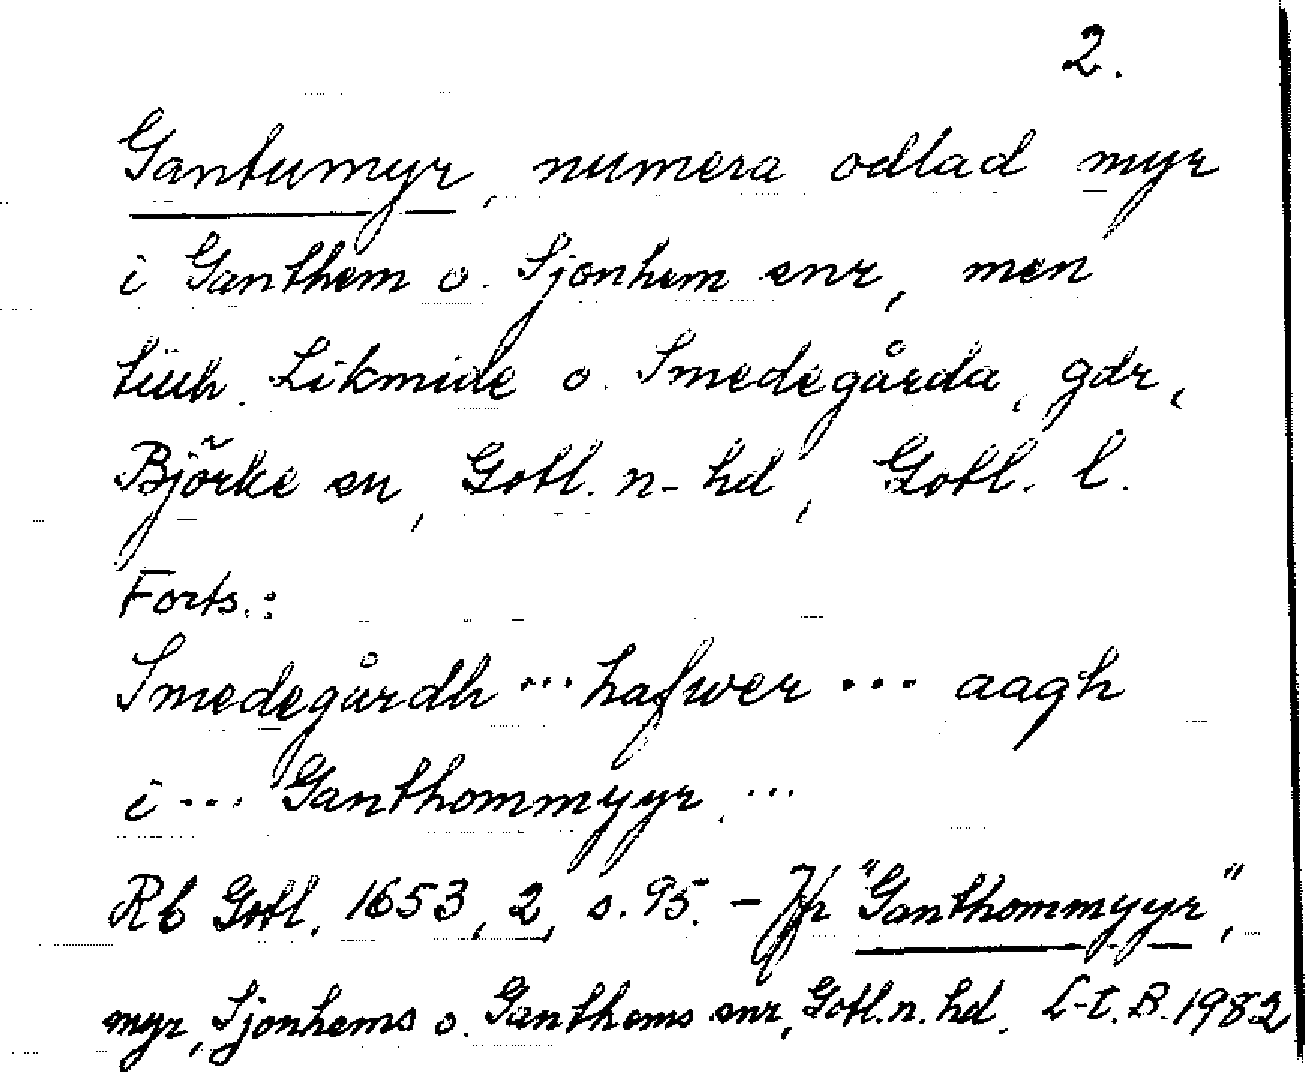 2.
Gantumyr, numera odlad myr
i Ganthem o. Sjonhem snr, men
tillh. Likmide o. Smedegårda, gdr,
Björke sn, Gotl. n. hd, Gotl. l.
Forts.:
Smedegårdh ... hafwer ... aagh
i ... Ganthommyyr ...
Rb Gotl. 1653, 2, s. 95. - Jfr "Ganthommyyr",
myr, Sjonhems o. Ganthems snr, Gotl. n. hd. L-t. B. 1982